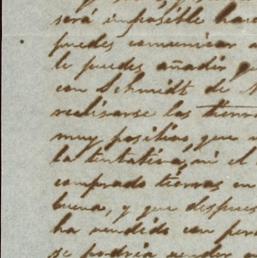 será imposible hace
puedes comunicar a
le puedes añadir qu
con Schmidt de N
realisarse las tierra
muy positivo, que n
la tentativa, ni el
comprado tierras en
buena, y que despues
ha vendido con per
se podria vender